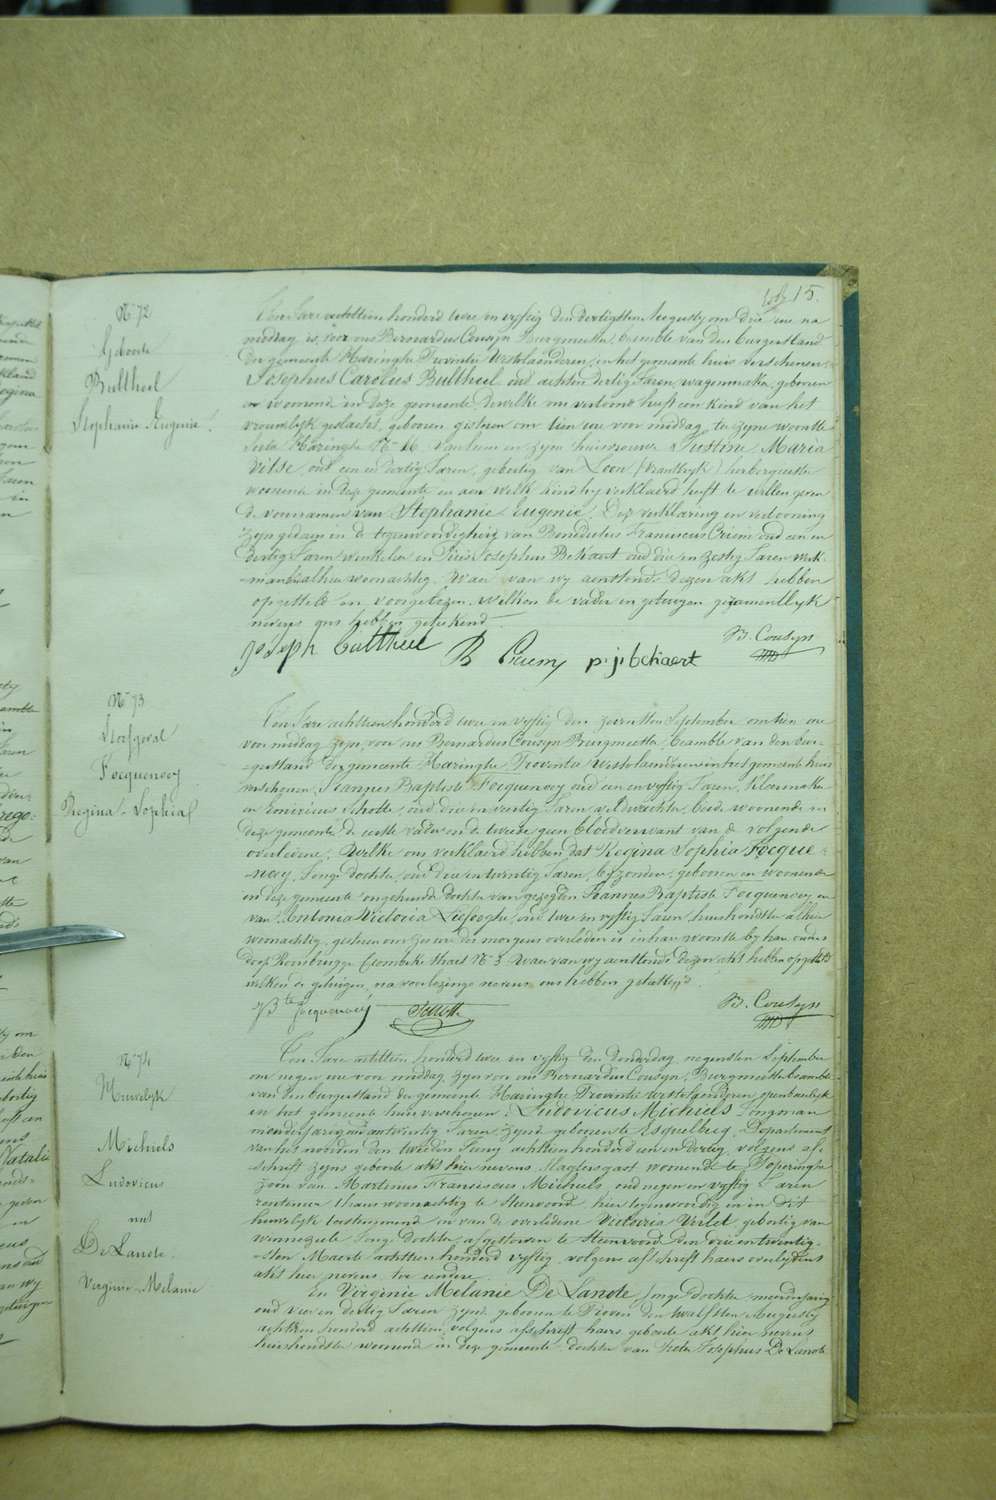 fol. 15.
N° 72
Geboorte
Bultheel
Stephanie Eugenie.
Ten Jare achttien honderd twee en vyftig den dertigsten Augusty om drie ure na
middag, is, voor ons Bernardus Cousyn Burgmeester, beambte van den burgerstand
der gemeente Haringhe Provintie Westvlaenderen, in het gemeente huis verschenen:
Josephus Carolus Bultheel oud achten dertig Jaren, wagenmaker, geboren
en woonend in deze gemeente, dewelke ons vertoond heeft een kind van het
vrouwelyk geslacht, geboren gisteren om tien ure voor middag, te zyne woonste
Haringhe N° 16 van hem en zyne huisvrouwe Justine Maria
Vitse, oud een en dertig Jaren, geboortig van Loon (Vrankryk) herbergierster
woonende in deze gemeente en aen welk kind hy verklaerd heeft te willen geven
de voornamen van Stephanie Eugenie. Deze verklaring en vertooning
zyn gedaen in de tegenwoordigheid van Benedictus Franciscus oud een en
dertig Jaren winkelier en Pieter Josephus Bekaert oud drie en zestig Jaren werk-
man beide alhier woonachtig. Waer van wy aenstonds dezen akt hebben
opgesteld en voorgelezen, welken de vader en getuigen gezamentlyk
nevens ons hebben geteekend.
Joseph bultheel B p:j:bekaert B. Cousyn
N° 73
Sterfgeval
Focquenoey
Regina Sophia
Ten Jare achttien honderd twee en vyftig den zevensten September om tien ure
voor middag zyn, voor ons Bernardus Cousyn Burgmeester, beambte van den bur-
gerstand der gemeente Haringhe, Provintie Westvlaenderen in het gemeente huis
verschenen, Joannes Baptiste Focquenoey oud een en vyftig Jaren, kleermaker
en Emericus Schotte, oud drie en veertig Jaren, veldwachter, beide woonende in
deze gemeente, de eerste vader en de tweede geen bloedverwant van de volgende
overledene, Welke ons verklaerd hebben dat Regina Sophia Focque-
noey, Jonge dochter, oud drie en twintig Jaren, byzondere, geboren en woonende
in deze gemeente ongehuwd, dochter van gezegden Joannes Baptiste Focquenoey, en
van Antonia Victoria Liefooghe, oud twee en vyftig Jaren, huishoudster alhier
woonachtig, gisteren om zes ure des morgens overleden is in haer woonste by haer ouders
dorp Rousbrugge Crombeke straet N° 3 Waer van wy aenstonds dezen akt hebben opgesteld
welken de getuigen, na voorlezinge nevens ons hebben geteekend.
J Bte focquenoey Schotte B. Cousyn
N° 74
Huwelyk
Michiels
Ludovicus
met
De Lanote
Virginie Melanie
Ten Jare achttien honderd twee en vyftig den donderdag negensten September
om negen ure voor middag, zyn voor ons Bernardus Cousyn, Burgmeester beambte
van den burgerstand der gemeente Haringhe Provintie Westvlaenderen, openbaerlyk
in het gemeente huis verschenen: Ludovicus Michiels Jongman
meerderjarig oud twintig Jaren zynde geboren te Esquelbecq, Departement
van het noorden den tweeden Juny achttien honderd een en dertig, volgens af-
schrift zyns geboorte akt hier nevens, Slagtersgast woonende te Poperinghe
zoon van Martinus Franciscus Michiels, oud negen en vyftig Jaren
rentenier thans woonachtig te Steenvoord, hier tegenwoordig en in dit
huwelyk toestemmend en van de overledene Victoria Verlet, geboortig van
Winnezeele Jonge dochter, afgestorven te Steenvoord den vier en twintig-
sten Maerte achttien honderd vyftig, volgens afschrift haers overlydens
akt hier nevens, ter eendere.
En Virginie Melanie De Lanote, Jonge dochter meerderjarig
oud vier en dertig Jaren zynde geboren te Proven den twalfsten Augusty
achttien honderd achttien, volgens afschrift haers geboorte akt hier nevens
huishoudster, woonend in deze gemeente, dochter van Pieter Josephus De Lanote